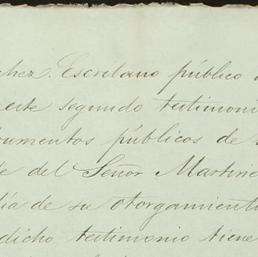 chez. Escribano público
este segundo testimoni
cumentos públicos de
de del Señor Martine
día de su otorgamient
dicho testimonio tiene